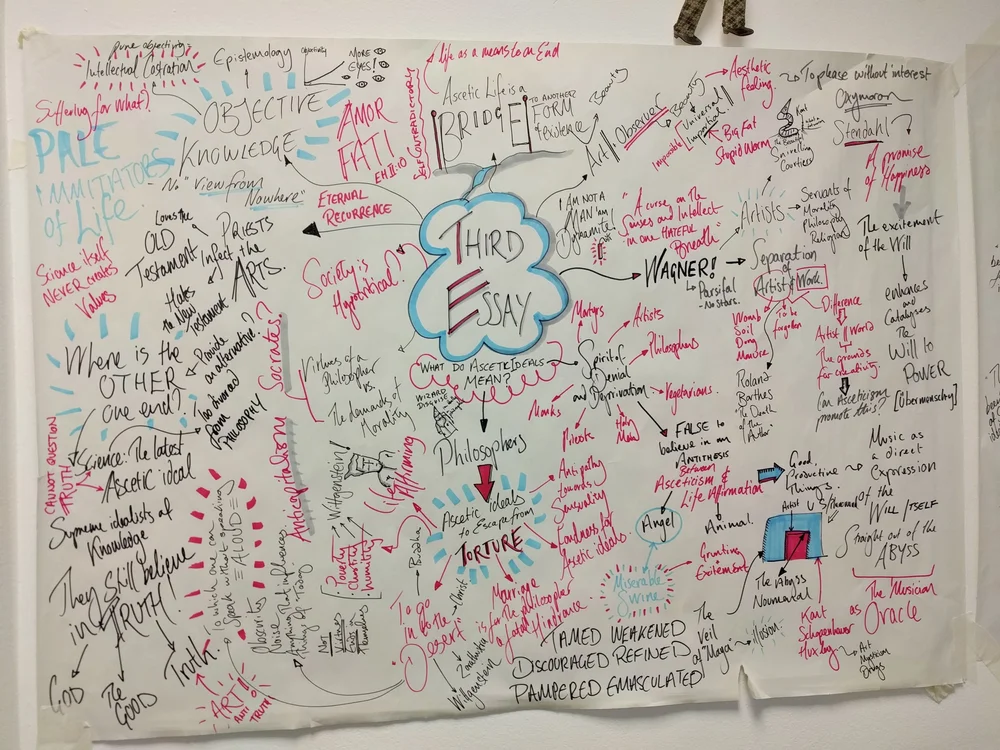 Intellectual Castration
Epistemology
Objectivity
MORE
EYES!
Suffering for What?
OBJECTIVE
KNOWLEDGE
No "View from
Nowhere"
PALE
IMMITATORS
of Life
AMOR
FATI
EH.II:10
SELF CONTRADICTORY
life as a means to an End
Ascetic Life is a
BRIDGE
TO ANOTHER
FORM
of existence
Beauty
Art
Observer
Beauty
Universal
Impartial
Impossible
Big Fat
Stupid Worm
Aesthetic
feeling.
To please without interest
Oxymoron
Kant
Stendahl?
A promise
of Happiness
The excitement
of the Will
enhances
and
Catalyses
The
Will to
POWER
[Übermensch]
ETERNAL
RECURRENCE
THIRD
ESSAY
"WHAT DO ASCETIC IDEALS
MEAN?"
I AM NOT A
MAN I am
Dynamite!
"A curse on the
Senses and Intellect
in one Hateful
Breath"
Artists
Servants of
Morality
Philosophy
Religion
WAGNER!
Parsifal
No stars.
Separation
of
Artist & Work
To be
forgotten
Womb
Soil
Dung
Manure
Roland
Barthes
The Death
of the
Author
Difference
Artist || World
The grounds
for creativity.
Can Asceticism
promote this?
Science itself
NEVER creates
Values
Loves the
OLD
Testament
Hates
the New
Testament
PRIESTS
Infect the
ARTS.
Society is
Hypocritical?
Where is the
OTHER
one end?
Provide
an alternative?
Too divorced
from
PHILOSOPHY
Socrates?
Virtues of a
Philosopher
vs.
The demands of
Morality
WIZARD
DISGUISE
Philosophers
Spirit of
Denial
and Deprivation
Martyrs
Artists
Philosophers
Vegetarians.
Holy
Men
Priests
Monks
CANNOT QUESTION
TRUTH
Science: The latest
Ascetic ideal
Supreme idealists of
Knowledge
They still believe
in TRUTH
GOD
The
GOOD
Truth.
ART!
ANTI
TRUTH
To which one can
Speak without speaking
ALOUD
Obscurity
Noise
Anything that influences
Today
Anticapitalism
Wittgenstein
Poverty
Chastity
Humility
Not
Virtues
Life Affirming
Buddha
Ascetic ideals
to Escape from
TORTURE
Antipathy
towards
Sensuality
Fondness for
Ascetic ideals.
To go
in to the
Desert
Christ
Zarathustra
Wittgenstein
Marriage
is for the Philosopher
a fatal Hindrance
FALSE to
believe in an
ANTITHESIS
Between
Asceticism &
Life Affirmation
Good
Productive
Things.
Angel
Animal.
Grunting
Excitement
Miserable
Swine
TAMED WEAKENED
DISCOURAGED REFINED
PAMPERED EMASCULATED
The
Veil
of "Maya"
Illusion.
Artist
The Abyss
Noumenal
Music as
a direct
Expression
of the
Will ITSELF
Straight out of the
ABYSS
Kant
Schopenhauer
Huxley
as
The Musician
Oracle
Art
Mysticism
Drugs